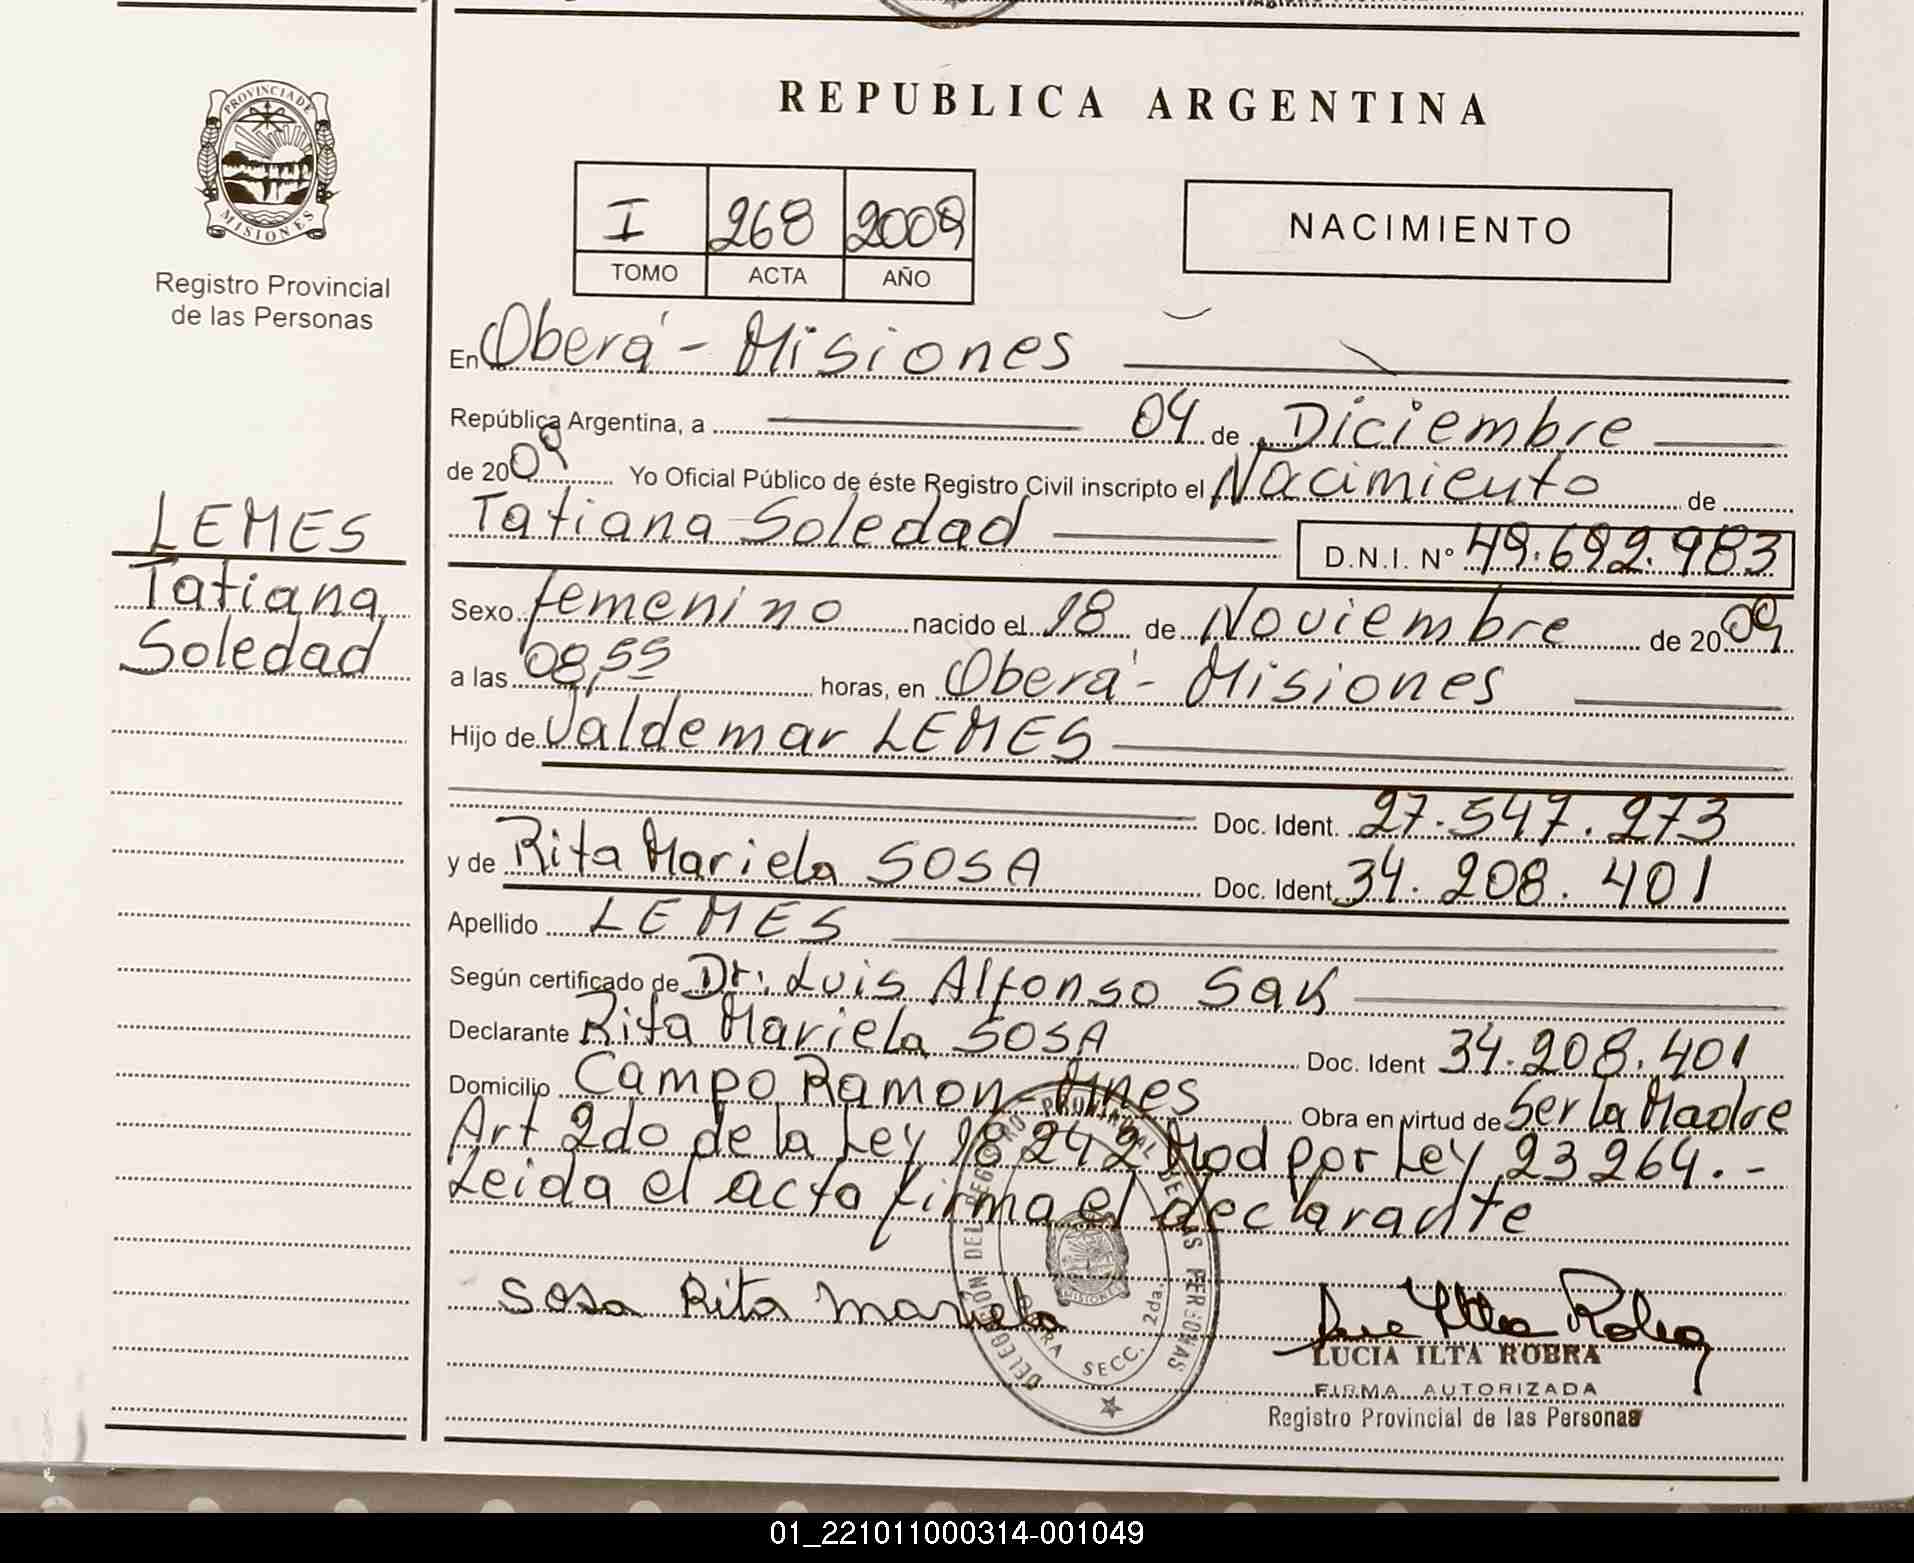 PROVINCIA DE
MISIONES
Registro Provincial
de las Personas
LEMES
Tatiana
Soledad
REPUBLICA ARGENTINA
I 268 2009
TOMO ACTA AÑO
NACIMIENTO
En Oberá - Misiones
República Argentina, a 04 de Diciembre
de 2009 Yo Oficial Público de éste Registro Civil inscripto el Nacimiento de
Tatiana Soledad D.N.I. N° 49.692.983
Sexo femenino nacido el 18 de Noviembre de 2009
a las 08,55 horas, en Oberá - Misiones
Hijo de Valdemar LEMES
Doc. Ident. 27.547.273
y de Rita Mariela SOSA Doc. Ident. 34.208.401
Apellido LEMES
Según certificado de Dr. Luis Alfonso Sak
Declarante Rita Mariela SOSA Doc. Ident 34.208.401
Domicilio Campo Ramon - Mnes Obra en virtud de Ser la Madre
Art 2do de la Ley 18242 Mod por Ley 23264.-
Leida el acta firma el declarante
DELEGACION DEL REGISTRO PROVINCIAL DE LAS PERSONAS
MISIONES
OBERA SECC. 2da.
Sosa Rita Mariela
LUCIA ILTA ROBRA
FIRMA AUTORIZADA
Registro Provincial de las Personas
01_221011000314-001049